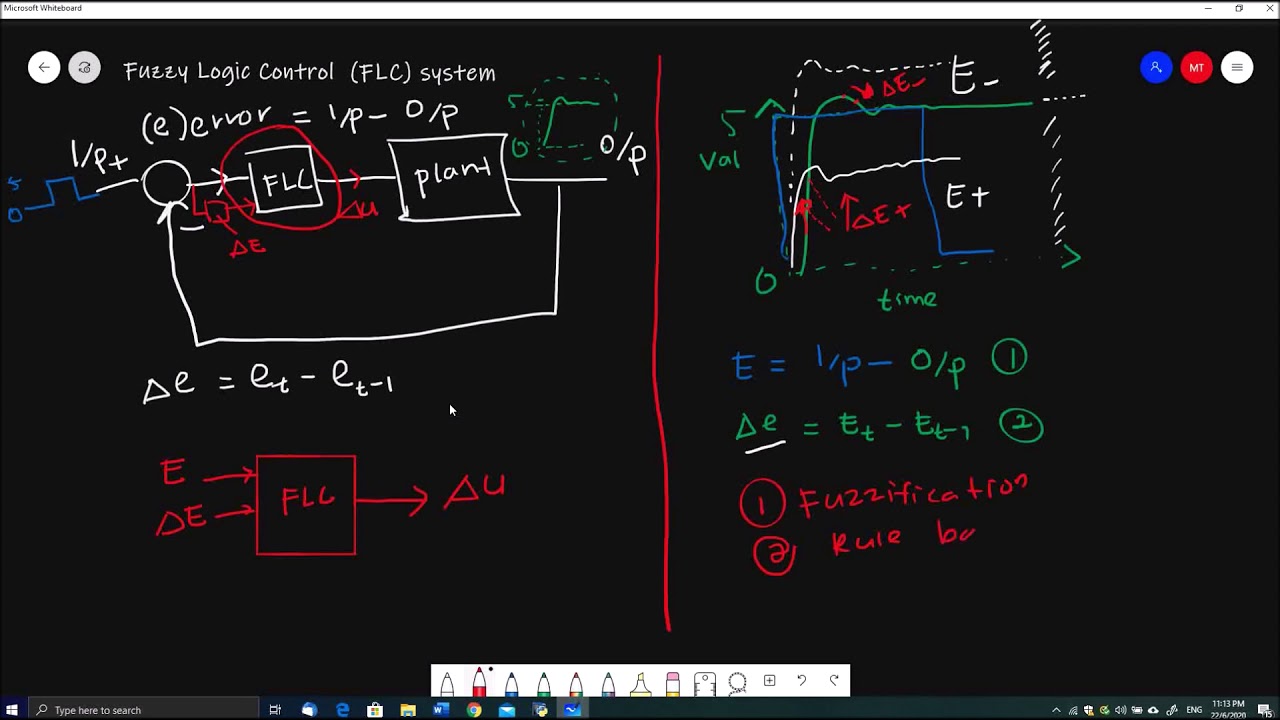 Microsoft Whiteboard
Fuzzy Logic Control (FLC) system
(e) error = I/p - O/p
I/p +
5
0
FLC
ΔU
ΔE
plant
5
0
O/p
Δe = e_t - e_t-1
E
ΔE
FLC
ΔU
5
Val
0
time
ΔE-
E-
E+
ΔE+
E = I/p - O/p ①
Δe = E_t - E_t-1 ②
① Fuzzification
② Rule ba
MT
Type here to search
ENG
11:13 PM
22/6/2020